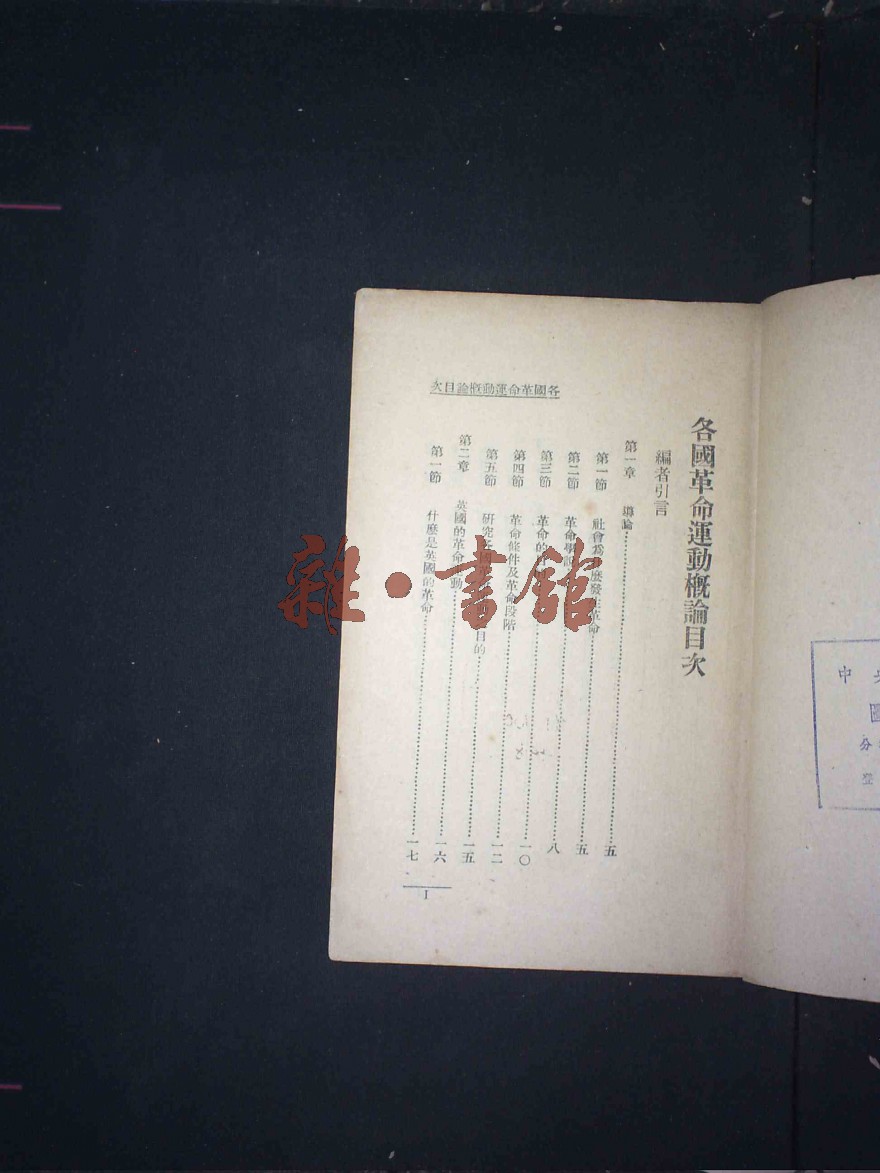 各國革命運動概論目次
編者引言
第一章 導論 五
第一節 社會為 麼發 革命 五
第二節 革命學說 八
第三節 革命的 一〇
第四節 革命條件及革命段階 一二
第五節 研究各國革命 動 目的 一五
第二章 英國的革命 動 一六
第一節 什麼是英國的革命 一七
各國革命運動概論目次
I
中央
圖
分
登
雜·書館